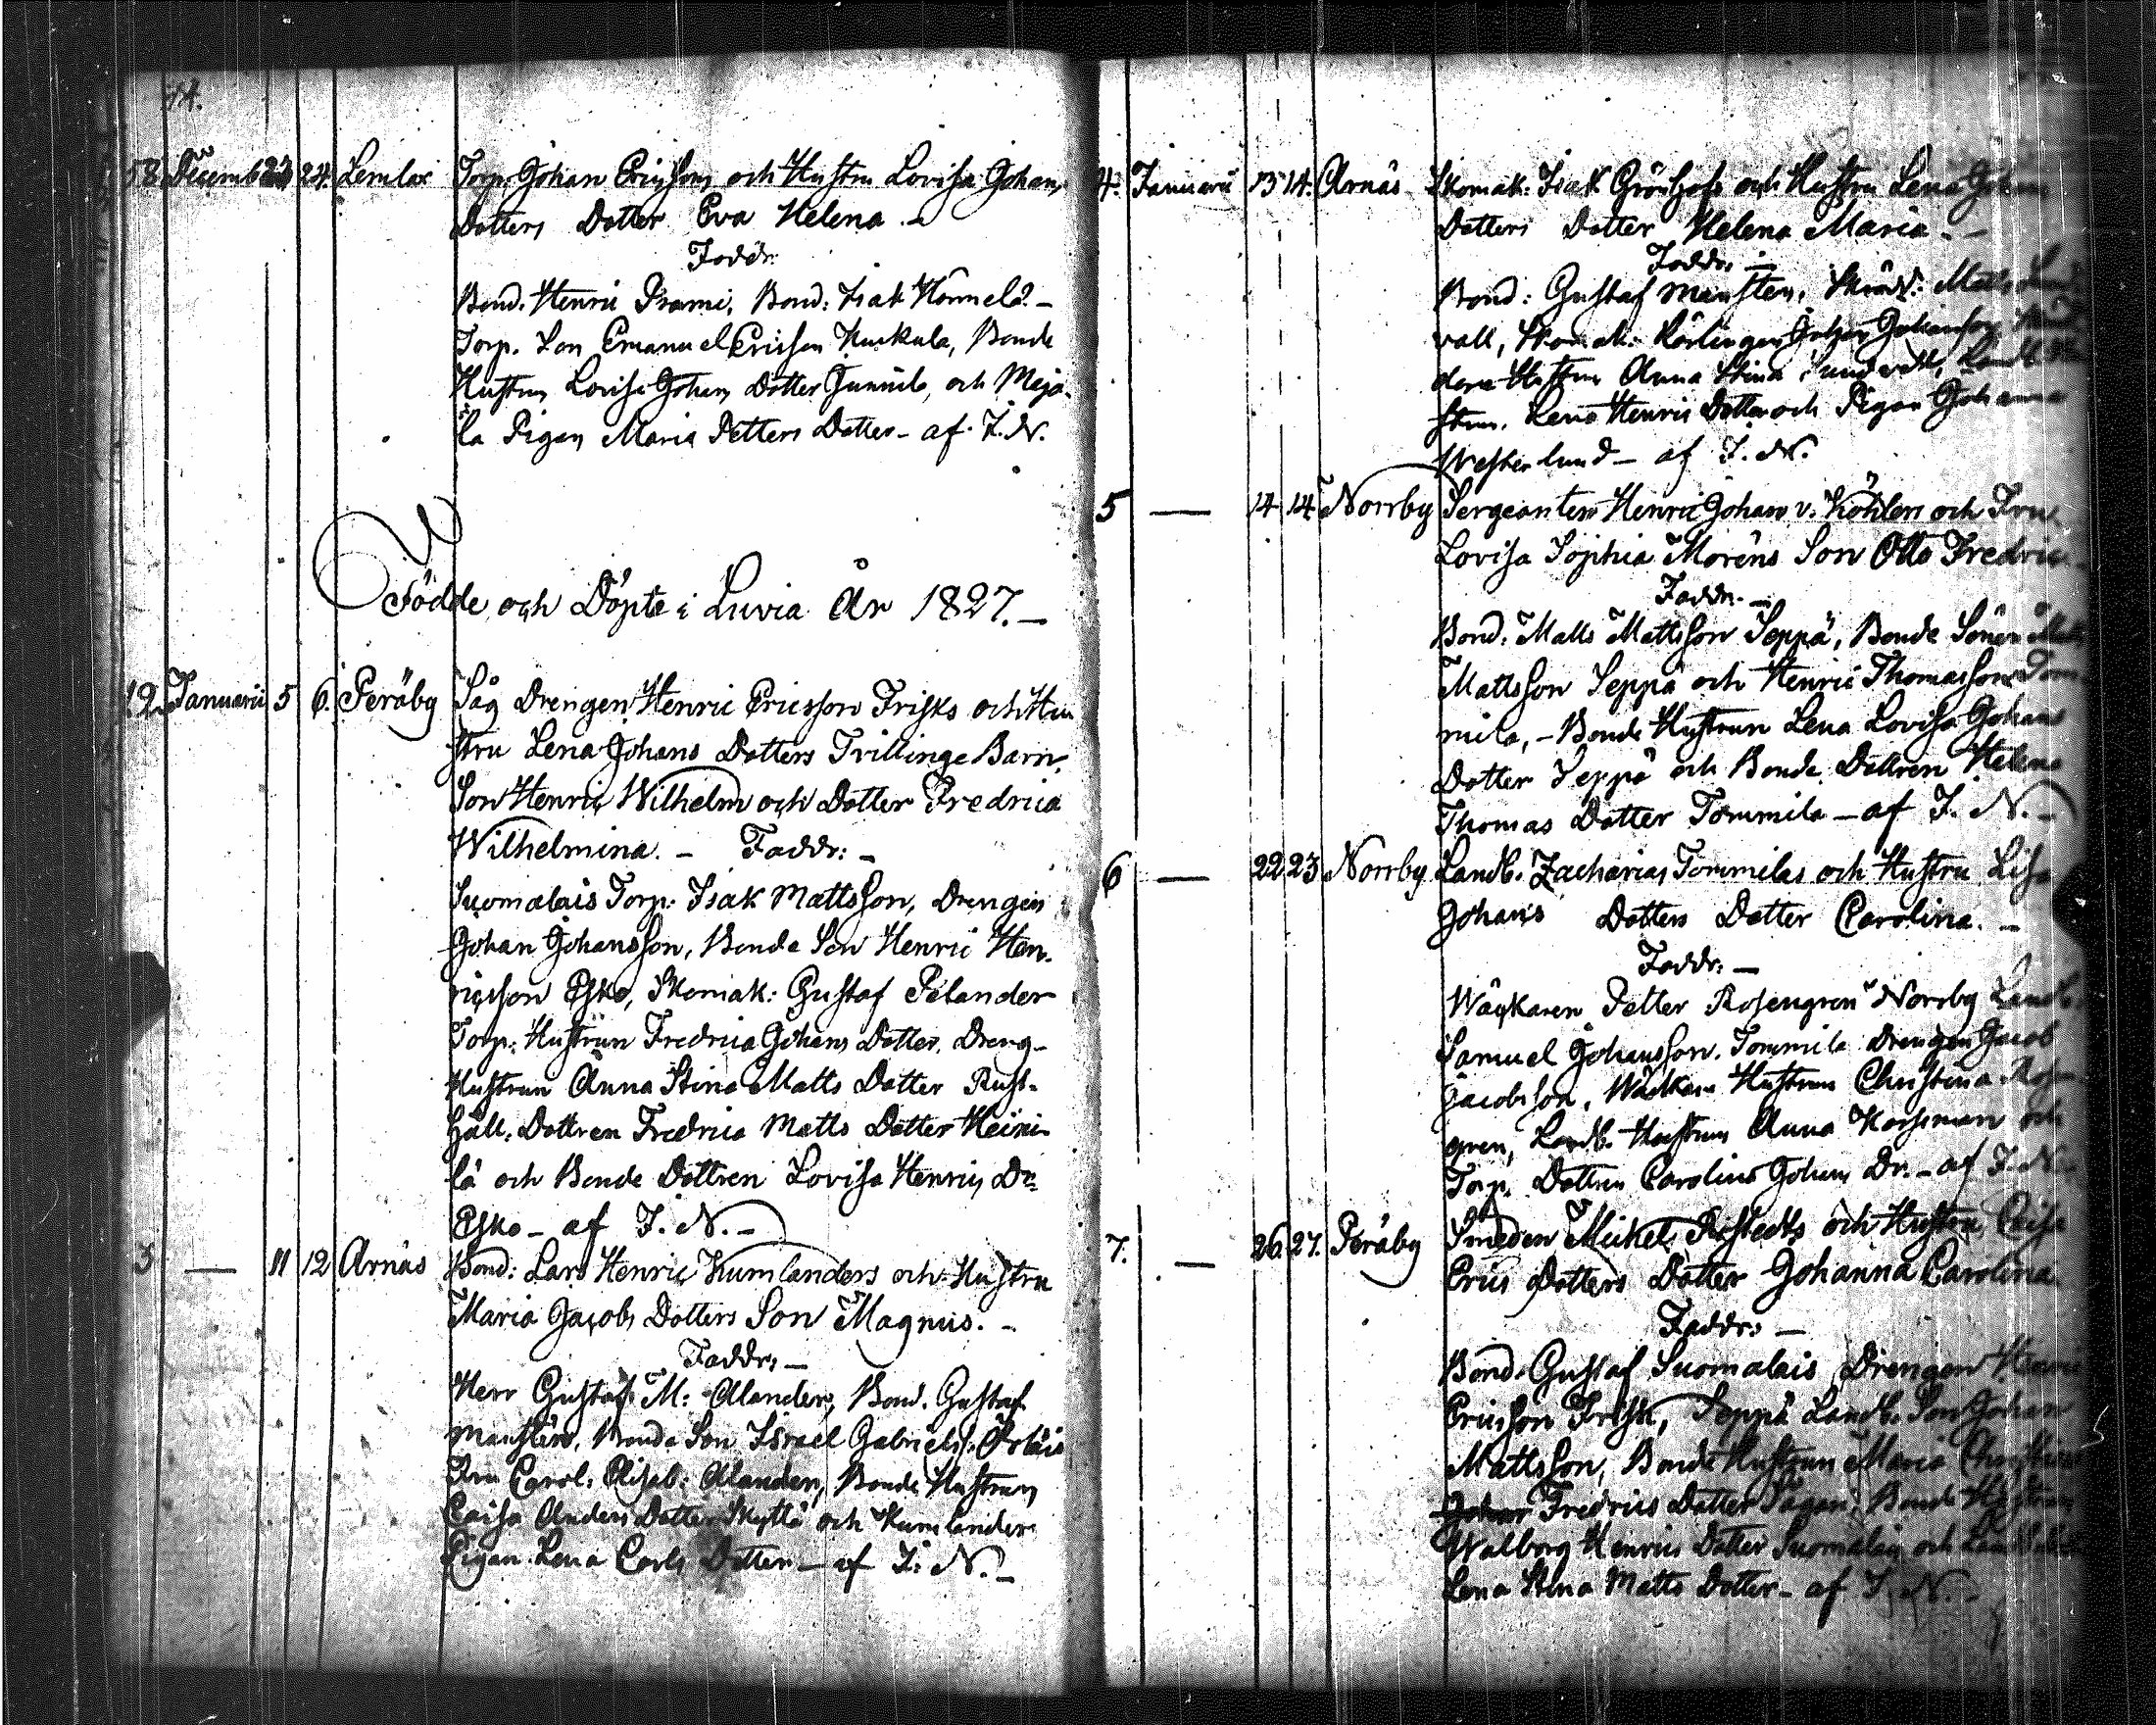 58. Decemb 23 24. Lemlax Torp. Johan Ericssons och Hustru Lovisa Johans
Dotters Dotter Eva Helena. -
Faddr:
Bond. Henric Prami, Bond: Isak
Torp. Son Emanuel Ericsson Kuckula, Bonde
Hustrun Lovisa Johans Dotter och Meijä-
lä Pigan Maria Petters Dotter - af I. N.
Födde och Döpte i Luvia År 1827. -
1 2. Januarii 5 6. Peräby Såg Drengen Henric Ericsson Frisks och Hu
stru Lena Johans Dotters Tvillinge Barn,
Son Henric Wilhelm och Dotter Fredrica
Wilhelmina. - Faddr: -
Suomalais Torp. Isak Mattsson, Drengen
Johan Johansson, Bonde Son Henric Hen-
ricsson Esko, Skomak: Gustaf Pelander
Torp: Hustrun Fredrica Johans Dotter, Dreng-
Hustrun Anna Stina Matts Dotter Rust-
håll. Dottren Fredrica Matts Dotter Heini-
lä och Bonde Dottren Lovisa Henrics Dr.
Esko - af I. N. -
3 — 11 12 Arnäs Bond: Lars Henric Kumlanders och Hustru
Maria Jacobs Dotters Son Magnus. -
Faddr: -
Herr Gustaf M: Alander, Bond. Gustaf
Mansten, Bonde Son Israel Gabrielss:
Fru Carol: Elisab: Alander, Bonde Hustrun
Caisa Anders Dotter Skyttä och Kumlanders
Pigan Lena Carls Dotter - af I. N. -
4. Januarii 13 14. Arnäs Skomak: Isak Grönhofs och Hustru Lena
Dotters Dotter Helena Maria. -
Faddr: -
Bond: Gustaf Mansten, Skräd: Matts
vall, Skomak: Lärlingen Johan Johansson
Hustrun Anna Stina
Lena Henrics Dotter och Pigan Johanna
Westerlund - af I. N.
5 — 14 14 Norrby Sergeanten Henric Johan v. Köhlers och Fru
Lovisa Sophia Moréns Son Otto Fredric
Faddr. -
Bond. Matts Mattsson Seppä, Bonde Sönen
Mattsson Seppä och Henric Thomasson Tom
mila, - Bonde Hustrun Lena Lovisa Johans
Dotter Seppä och Bonde Dottren Helena
Thomas Dotter Tommila - af I. N. -
6 — 22 23 Norrby Landb. Zacharias Tommilas och Hustru Lisa
Johans Dotters Dotter Carolina. -
Faddr: -
Wäckaren Petter Rosengren Norrby Landb.
Samuel Johansson, Tommila Drengen Jacob
Jacobsson, Wäckare Hustrun Christina Rosen
gren, Landb. Hustrun Anna och
Torp. Dottren Carolina Johans Dr. - af I. N. -
7. — 26 27. Peräby Smeden Michel och Hustru Caisa
Erics Dotters Dotter Johanna Carolina
Faddr: -
Bond. Gustaf Suomalais, Drengen Henric
Ericsson Frisk, Seppä Landb. Son Johan
Mattsson, Bonde Hustrun Maria
Fredrics Dotter Bonde Hustrun
Walborg Henrics Dotter Suomalais och
Lena Stina Matts Dotter - af I. N. -